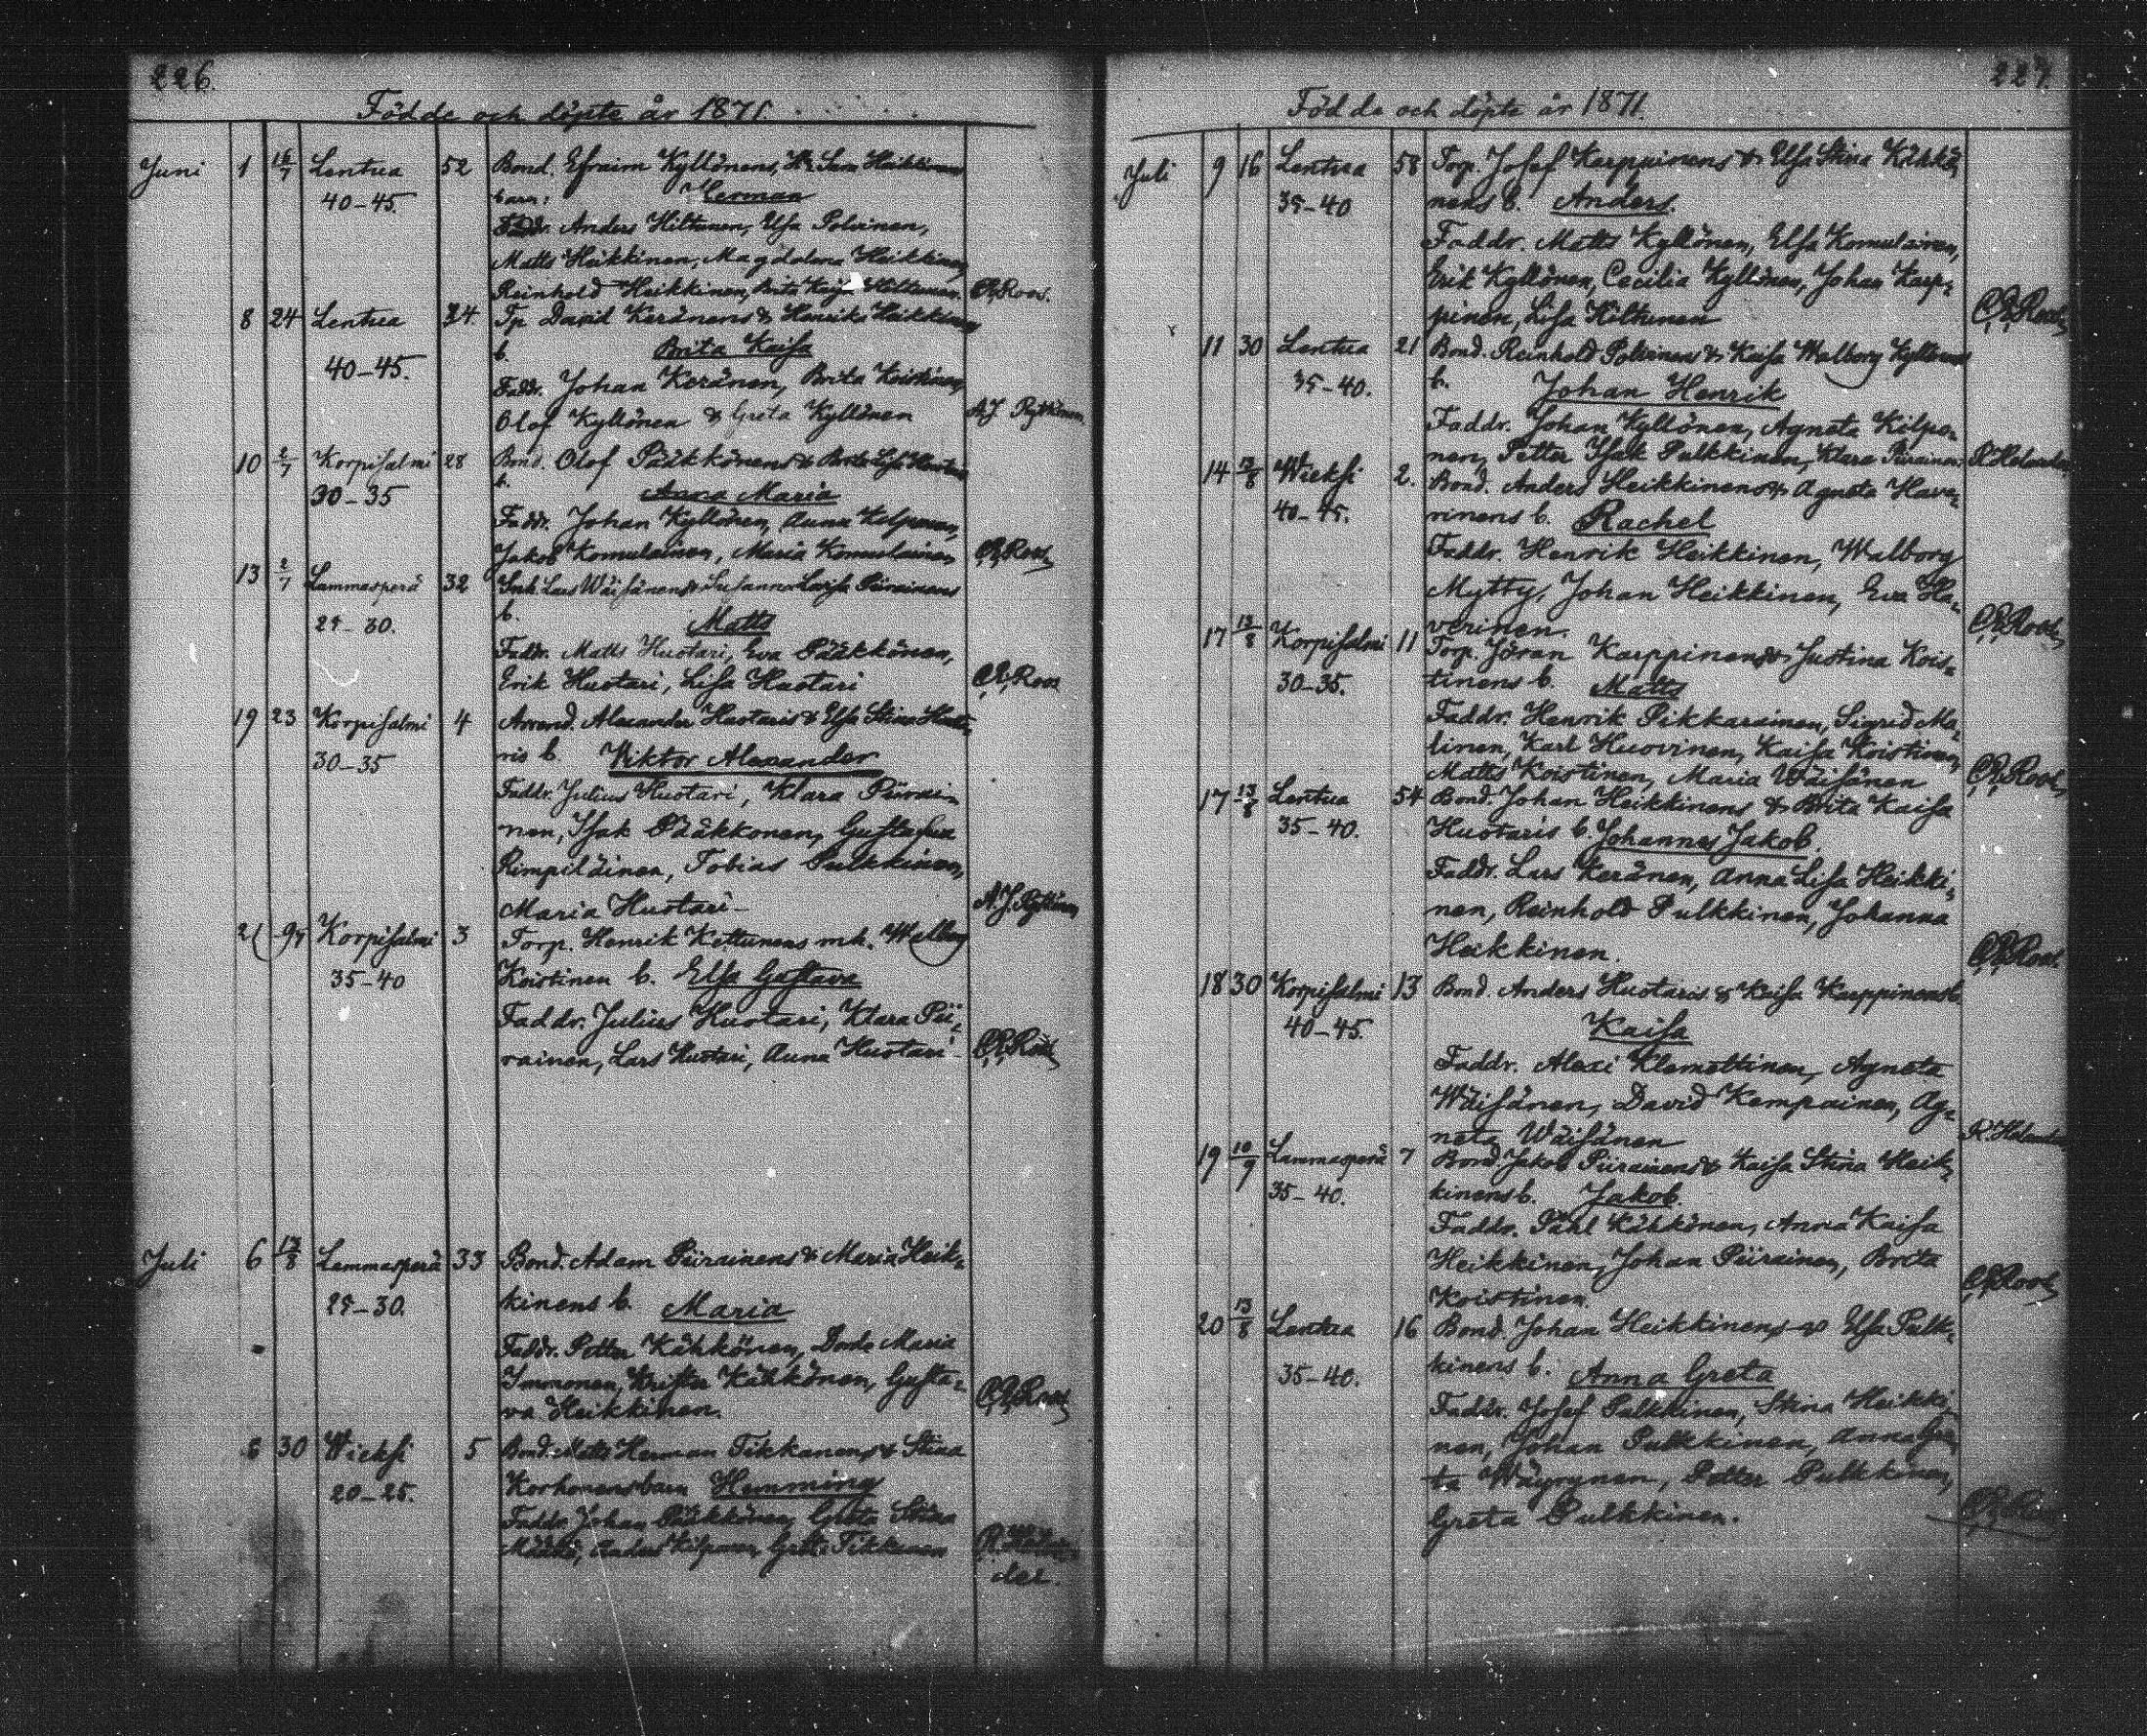 226.
Födde och döpte år 1871
Juni 1 16/7 Lentua 52 Bond. Efraim Kyllönens, Sara Heikkinens
40-45. barn: Herman
Faddr. Anders Hiltunen, Elsa Polvinen,
Matts Heikkinen, Magdalena Heikkinen
Reinhold Heikkinen, Brita Kaisa Hiltunen. Roos.
8 24 Lentua 24 Tp David Keränens & Henrika Heikkinens
40-45. b. Brita Kaisa
Faddr. Johan Keränen, Brita Koistinen,
Olof Kyllönen & Greta Kyllönen A. J. Pyykönen
10 2/7 Korpisalmi 28 Bond. Olof Pääkkönens & Brita Lisa
30-35 b. Anna Maria
Faddr. Johan Kyllönen, Anna Kilponen,
Jakob Komulainen, Maria Komulainen Roos
13 2/7 Lammasperä 32 Inh Lars Wäisänens & Susanna Lovisa Piirainens
25-30. b. Matts
Faddr. Matts Huotari, Eva Pääkkönen,
Erik Huotari, Lisa Huotari Roos
19 23 Korpisalmi 4 Arrend. Alexander Huotaris & Elsa Stina Huota-
30-35 ris b. Viktor Alexander
Faddr. Julius Huotari, Klara Piirai-
nen, Isak Pääkkonen, Gustafva
Rimpiläinen, Tobias Pulkkinen,
Maria Huotari- A. J.
21 9/7 Korpisalmi 3 Torp. Henrik Kettunens m.h. Walborg
35-40 Koistinen b. Elsa Gustava
Faddr. Julius Huotari, Klara Pii-
rainen, Lars Huotari, Anna Huotari- Roos
Juli 6 13/8 Lammasperä 33 Bond. Adam Piirainens & Maria Heik-
25-30. kinens b. Maria
Faddr. Petter Kähkönen, Maria
Immonen, Krister Kähkönen, Gusta-
va Heikkinen. Roos
8 30 Wieksi 5 Bond. Matts Herman Tikkanens & Stina
20-25. Korhonens barn Hemming
Faddr. Johan Pääkkönen, Greta Stina
Anders Kilponen, Tikkanen R. Helan-
der.
227.
Födde och döpte år 1871.
Juli 9 16 Lentua 58 Torp. Josef Karppinens & Elsa Stina Kähkö-
35-40 nens b. Anders.
Faddr. Matts Kyllönen, Elsa Komulainen,
Erik Kyllönen, Cecilia Kyllönen, Johan Karp-
pinen, Lisa Hiltunen Roos
11 30 Lentua 21 Bond. Reinhold Polvinens & Kaisa Walborg Kyllönens
35-40. b. Johan Henrik
Faddr. Johan Kyllönen, Agneta Kilpo-
nen, Petter Isak Pulkkinen, Klara Piirainen. R. Helander
14 13/8 Wieksi 2. Bond. Anders Heikkinens & Agneta Have-
40-45. rinens b. Rachel
Faddr. Henrik Heikkinen, Walborg
Mytty, Johan Heikkinen, Eva Ha-
verinen. Roos
17 13/8 Korpisalmi 11 Torp. Jöran Karppinens & Justina Kois-
30-35. tinens b. Matts
Faddr. Henrik Pikkarainen, Sigrid Ma-
linen, Karl Huovinen, Kaisa Koistinen,
Matts Koistinen, Maria Wäisänen Roos
17 13/8 Lentua 54 Bond. Johan Heikkinens & Brita Kaisa
35-40. Huotaris b. Johannes Jakob.
Faddr. Lars Keränen, Anna Lisa Heikki-
nen, Reinhold Pulkkinen, Johanna
Heikkinen. Roos
18 30 Korpisalmi 13 Bond. Anders Huotaris & Kaisa Karppinens b.
40-45. Kaisa
Faddr. Alexi Klemettinen, Agneta
Wäisänen, David Kempainen, Ag-
neta Wäisänen R. Helander
19 10/9 Lammasperä 7 Bond. Jakob Piirainens & Kaisa Stina Heik-
35-40. kinens b. Jakob.
Faddr. Påhl Kähkönen, Anna Kaisa
Heikkinen, Johan Piirainen, Brita
Koistinen. Roos
20 13/8 Lentua 16 Bond. Johan Heikkinens & Elsa Pulk-
35-40. kinens b. Anna Greta
Faddr. Josef Pulkkinen, Stina Heikki-
nen, Johan Pulkkinen, Anna Gre-
ta Wäyrynen, Petter Pulkkinen,
Greta Pulkkinen.